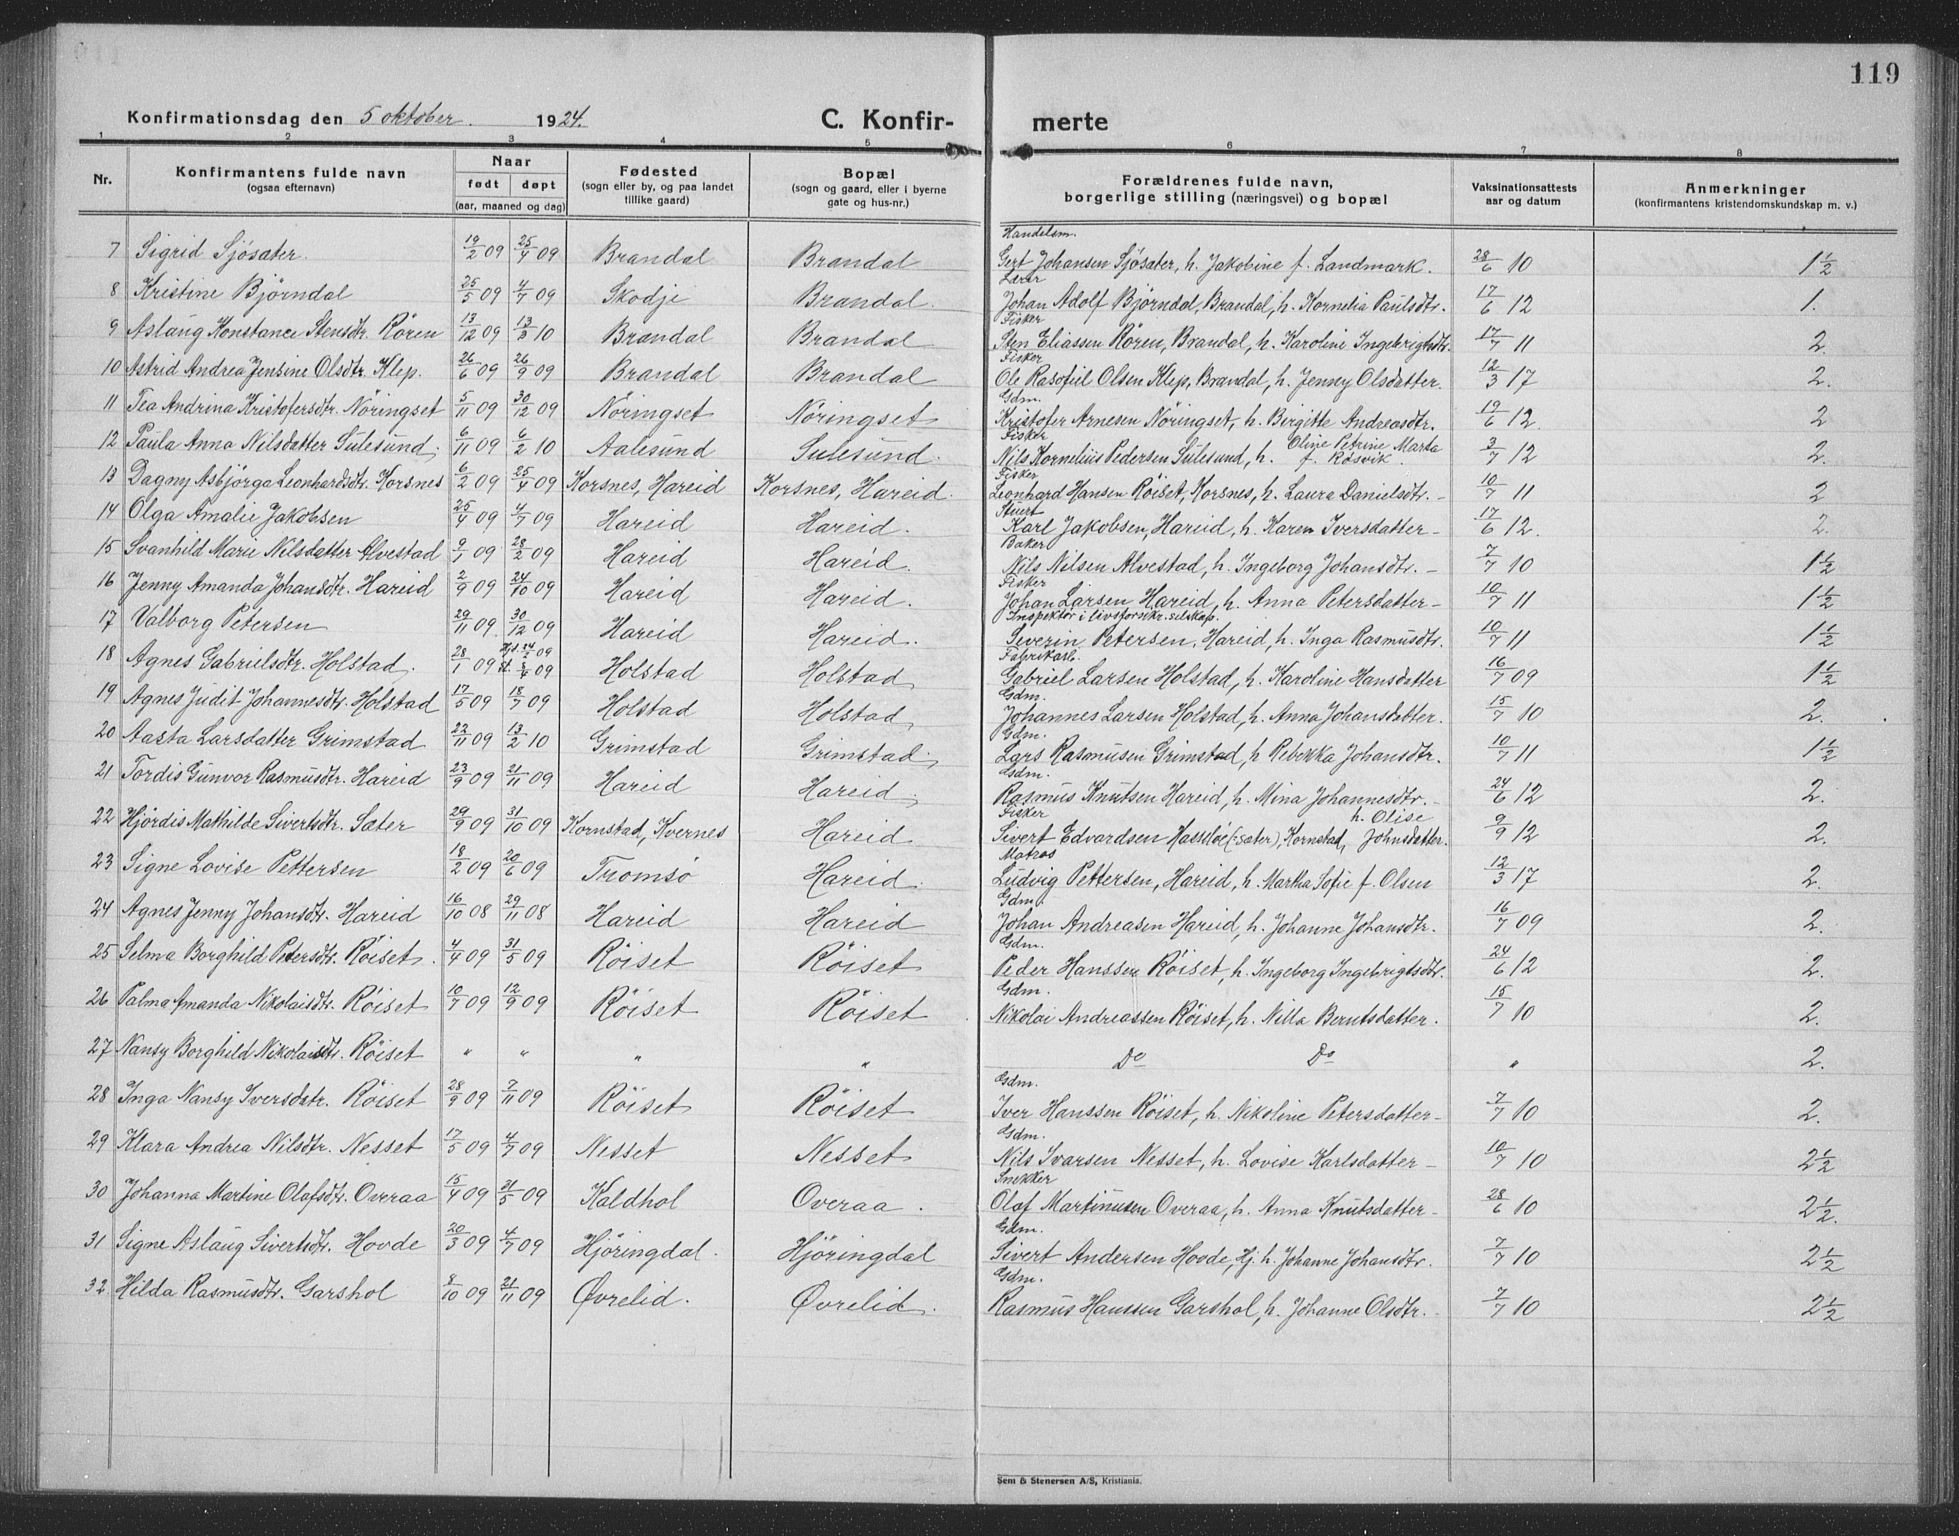 119
Konfirmationsdag den 5 oktober 1924. C. Konfir- merte
1 2 3 4 5 6 7 8
Nr. Konfirmantens fulde navn (ogsaa efternavn) Naar født døpt (aar, maaned og dag) Fødested (sogn eller by, og paa landet tillike gaard) Bopæl (sogn og gaard, eller i byerne gate og hus-nr.) Forældrenes fulde navn, borgerlige stilling (næringsvei) og bopæl Vaksinationsattests aar og datum Anmerkninger (konfirmantens kristendomskundskap m. v.)
Handelsm.
7 Sigrid Sjösæter. 19/2 09 25/4 09 Brandal Brandal Gert Johansen Sjösæter, h. Jakobine f. Landmark. 28/6 10 1 1/2
Lærer
8 Kristine Björndal 25/5 09 4/7 09 Skodje Brandal. Johan Adolf Björndal, Brandal, h. Kornelia Paulsdtr. 17/6 12 1.
Fisker
9 Aslaug Konstance Stensdtr. Rören 13/12 09 13/3 10 Brandal Brandal Sten Eliassen Rören, Brandal, h. Karoline Ingebrigtsdtr. 17/7 11 2.
Fisker
10 Astrid Andrea Jensine Olsdtr. Klep. 26/6 09 26/9 09 Brandal Brandal Ole Rasofiel Olsen Klep, Brandal, h. Jenny Olsdatter. 12/3 17 2.
Gdm.
11 Tea Andrina Kristofersdtr. Nöringset 5/11 09 30/12 09 Nöringset Nöringset Kristofer Arnesen Nöringset, h. Birgitte Andreasdtr. 19/6 12. 2
Fisker
12 Paula Anna Nilsdatter Sulesund. 6/11 09 6/2 10 Aalesund Sulesund. Nils Kornelius Pedersen Sulesund, h. Oline Petrine Marta f. Røsvik. 3/7 12 2.
Fisker
13 Dagny Asbjörga Leonhardsdtr. Korsnes 6/2 09 25/4 09 Korsnes, Hareid Korsnes, Hareid. Leonhard Hansen Röiset, Korsnes, h. Laura Danielsdtr. - 10/7 11 2
Stuert
14 Olga Amalie Jakobsen 25/4 09 4/7 09 Hareid Hareid. Karl Jakobsen, Hareid, h. Karen Iversdatter - 17/6 12. 2.
Baker
15 Svanhild Marie Nilsdatter Alvestad 9/1 09 28/2 09 Hareid Hareid. Nils Nilsen Alvestad, h. Ingeborg Johansdtr. - 7/7 10 1 1/2
Fisker
16 Jenny Amanda Johansdtr. Hareid 2/9 09 24/10 09 Hareid Hareid. Johan Larsen Hareid, h. Anna Petersdatter - 10/7 11 1 1/2
Inspektör i livsforsikr. selskap.
17 Valborg Petersen 29/11 09. 30/12 09 Hareid Hareid. Severin Petersen, Hareid, h. Inga Rasmusdtr. 10/7 11 1 1/2
Fabrikarb.
18 Agnes Gabrielsdtr. Holstad. 28/1 09 Holstad Holstad Gabriel Larsen Holstad, h. Karoline Hansdatter 16/7 09 1 1/2
Gdm.
19 Agnes Judit Johannesdtr. Holstad 17/5 09 18/7 09 Holstad Holstad Johannes Larsen Holstad, h. Anna Johansdatter. 15/7 10 2.
Gdm.
20 Aasta Larsdatter Grimstad 22/11 09 13/2 10 Grimstad Grimstad. Lars Rasmusen Grimstad, h Rebekka Johansdtr. 10/7 11 1 1/2
Gdm.
21 Tordis Gunvor Rasmusdtr. Hareid 23/9 09 21/11 09 Hareid Hareid. Rasmus Knutsen Hareid, h. Mina Johannesdtr. - 24/6 12 2.
Fisker
22 Hjördis Mathilde Sivertsdtr. Sæter 29/9 09 31/10 09 Kornstad, Kvernes Hareid Sivert Edvardsen Hasslöe (:Sæter), Kornstad, h. Olise Johnsdatter. 9/9 12 2.
Matros
23 Signe Lovise Pettersen 18/2 09 20/6 09 Tromsö Hareid. Ludvig Pettersen, Hareid, h. Martha Sofie f. Olsen 12/3 17 2.
Gdm.
24 Agnes Jenny Johansdtr. Hareid 16/10 08 29/11 08 Hareid Hareid Johan Andreasen Hareid, h. Johanne Johansdtr. 16/7 09 2.
Gdm.
25 Selma Borghild Petersdtr. Röiset. 4/4 09 31/5 09 Röiset Röiset Peder Hanssen Röiset, h. Ingeborg Ingebrigtsdtr. 24/6 12 2.
Gdm.
26 Palma Amanda Nikolaisdtr. Röiset 10/7 09 12/9 09 Röiset Röiset Nikolai Andreassen Röiset, h. Nilla Berntsdatter. 15/7 10 2.
27 Nansy Borghild Nikolaisdtr. Röiset " " " " Do Do " 2.
Gdm.
28 Inga Nansy Iversdatr. Röiset 28/9 09 7/11 09 Röiset Röiset Iver Hanssen Röiset, h. Nikoline Petersdatter - 7/7 10 2.
Gdm.
29 Klara Andrea Nilsdtr. Nesset 17/5 09 4/7 09 Nesset Nesset Nils Ivarsen Nesset, h. Lovise Karlsdatter - 10/7 10 2 1/2
Snekker
30 Johanna Martine Olafsdtr. Overaa 15/4 09 31/5 09 Kaldhol Overaa. Olaf Martinusen Overaa, h. Anna Knutsdatter - 28/6 10 2 1/2.
Gdm.
31 Signe Aslaug Sivertsdtr. Hovde 20/3 09 4/7 09 Hjöringdal. Hjöringdal Sivert Andersen Hovde, Hj. h. Johanne Johansdtr. 7/7 10 2 1/2
Gdm.
32 Hilda Rasmusdtr. Garshol 8/10 09 21/11 09 Øvrelid. Øvrelid. Rasmus Hanssen Garshol, h. Johanne Olsdtr. - 7/7 10 2 1/2
Sem & Stenersen A/S, Kristiania.